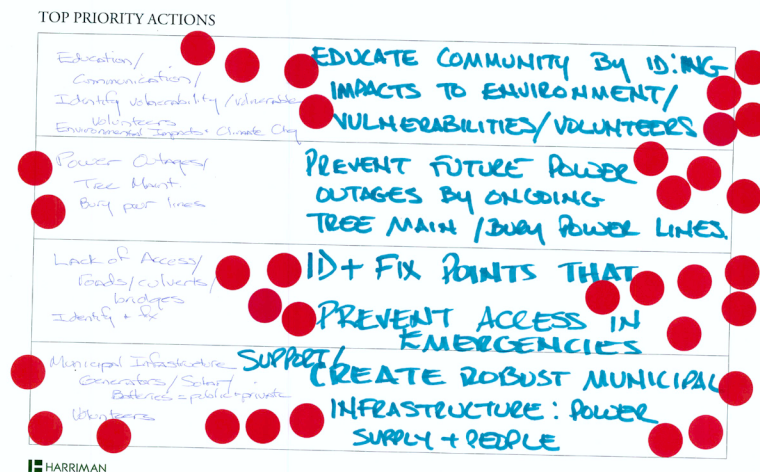 TOP PRIORITY ACTIONS
Education/
Communication/
Identify Vulnerability/Vulnerable
Volunteers
Environmental Impacts + Climate Chg
EDUCATE COMMUNITY BY ID:ING
IMPACTS TO ENVIRONMENT/
VULNERABILITIES/VOLUNTEERS
Power Outages/
Tree Maint.
Bury pwr lines
PREVENT FUTURE POWER
OUTAGES BY ONGOING
TREE MAIN /BURY POWER LINES.
Lack of Access/
roads/culverts/
bridges
Identify + fix
ID + FIX POINTS THAT
PREVENT ACCESS IN
EMERGENCIES
Municipal Infrastructure
Generators/Solar/
Batteries = public + private
Volunteers
SUPPORT/
CREATE ROBUST MUNICIPAL
INFRASTRUCTURE: POWER
SUPPLY + PEOPLE
HARRIMAN